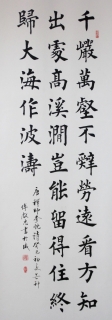 千巖萬壑不辭勞遠看方知
出處高溪澗豈能留得住終
歸大海作波濤
唐禪師李忱詩癸巳初夏